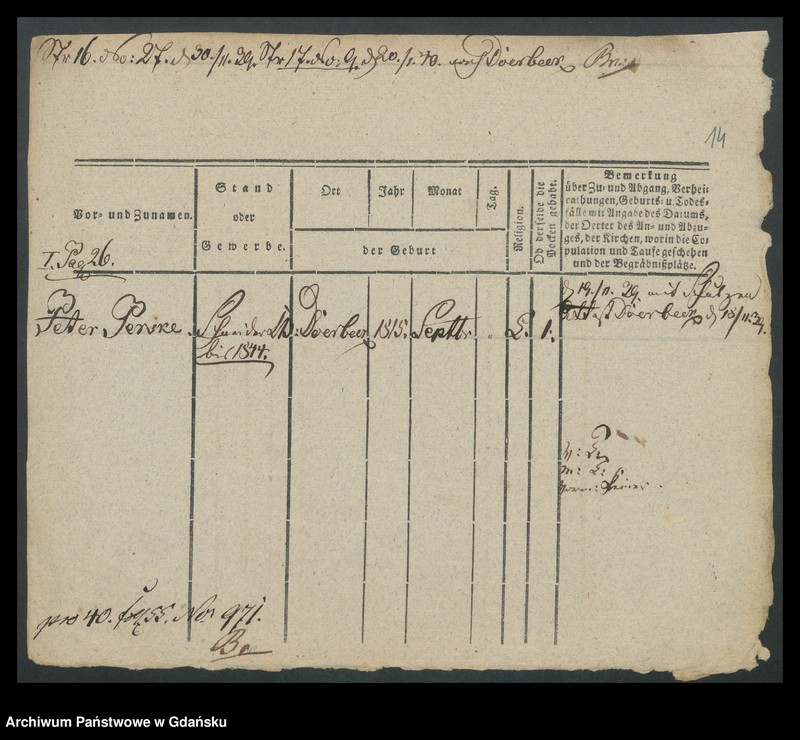 Str 16. No: 27. d 30./11. 39. Str 17. No 9. d 20./1. 40. nach Döerbeck
14
Vor- und Zunamen.
Stand
oder
Gewerbe.
Ort
Jahr
Monat
Tag.
der Geburt
Religion.
Ob derselbe die
Pocken gehabt.
Bemerkung
über Zu- und Abgang, Verhei-
rathungen, Geburts- u. Todes-
fälle mit Angabe des Datums,
der Oerter des An- und Abzu-
ges, der Kirchen, worin die Co-
pulation und Taufe geschehen
und der Begräbnißplätze.
I. Pag 26.
Peter Perske.
Schneider
bis 1844.
Döerbeck
1815.
Septbr
"
L.
1.
d 14./11. 39 mit
Döerbeck d 18/11. 39.
V: L.
M: L:
pro 40. fol 55. No. 971.
Archiwum Państwowe w Gdańsku